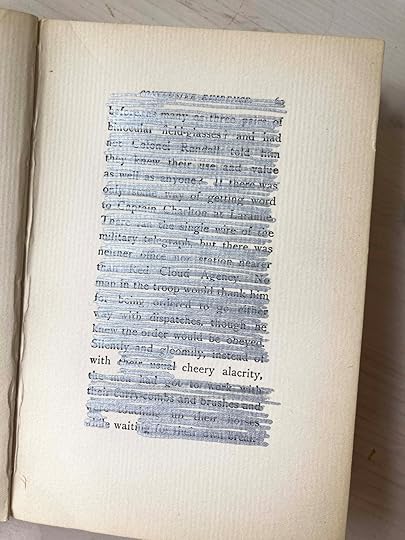 63
before as many as three pairs of
binocular field-glasses? and had
not Colonel Randall told him
they knew their use and value
as well as anyone? If there was
only some way of getting word
to Captain Charlton at Laramie.
There ran the single wire of the
military telegraph, but there was
neither office nor station nearer
than Red Cloud Agency. No
man in the troop would thank him
for being ordered to go either
way with dispatches, though he
knew the order would be obeyed.
Silently and gloomily, instead of
with their usual cheery alacrity,
the men had got to work with
their curry-combs and brushes and
were touching up their horses
while waiting for their own break-